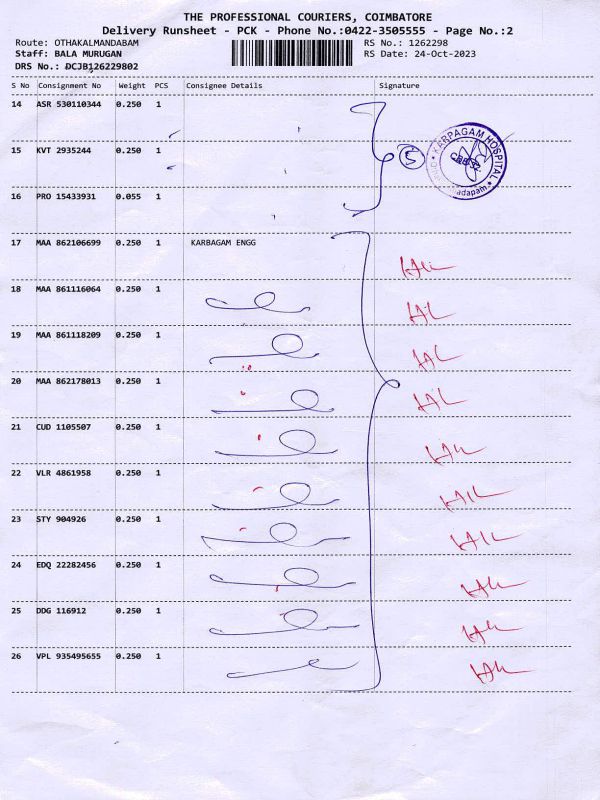 THE PROFESSIONAL COURIERS, COIMBATORE
Delivery Runsheet - PCK - Phone No.:0422-3505555 - Page No.:2
Route: OTHAKALMANDABAM RS No.: 1262298
Staff: BALA MURUGAN RS Date: 24-Oct-2023
DRS No.: DCJB126229802
S No Consignment No Weight PCS Consignee Details Signature
14 ASR 530110344 0.250 1
15 KVT 2935244 0.250 1
16 PRO 15433931 0.055 1
KARPAGAM HOSPITAL
17 MAA 862106699 0.250 1 KARBAGAM ENGG
18 MAA 861116064 0.250 1
19 MAA 861118209 0.250 1
20 MAA 862178013 0.250 1
21 CUD 1105507 0.250 1
22 VLR 4861958 0.250 1
23 STY 904926 0.250 1
24 EDQ 22282456 0.250 1
25 DDG 116912 0.250 1
26 VPL 935495655 0.250 1